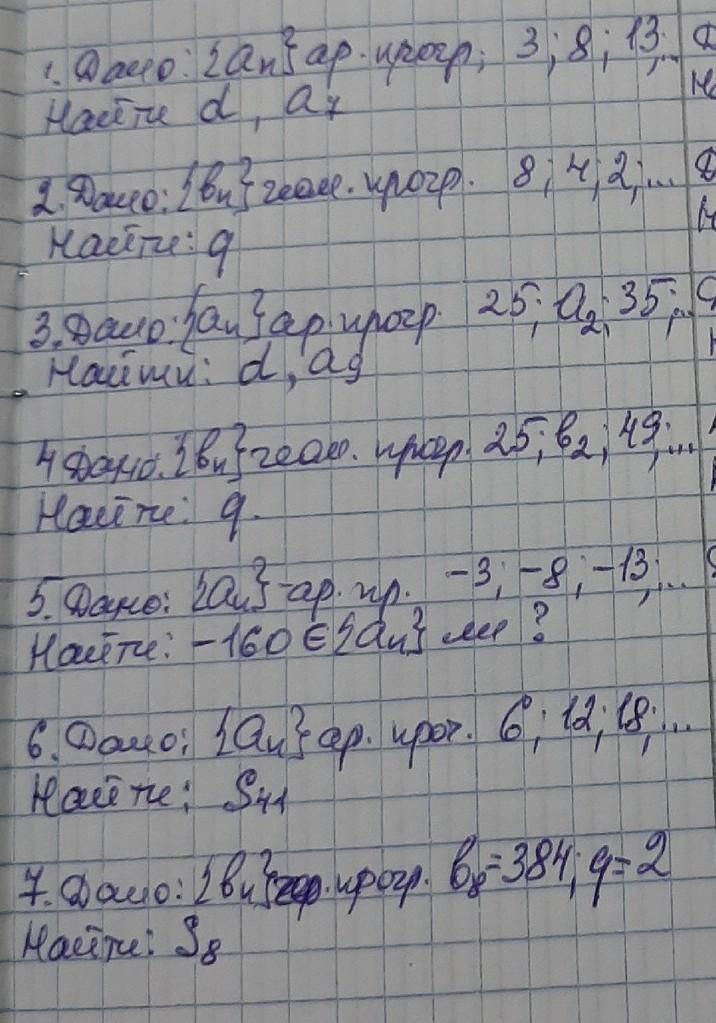 1. Дано: {aₙ} ар. прогр; 3; 8; 13;.. Д
Найти d, a₇
2. Дано: {bₙ} геом. прогр. 8; 4; 2;...
Найти: q
3. Дано: {aₙ} ар. прогр. 25; a₂; 35;..
Найти: d, a₉
4 Дано: {bₙ} геом. прогр. 25; b₂; 49;...
Найти: q.
5. Дано: {aₙ} - ар. пр. -3; -8; -13;...
Найти: -160 ∈ {aₙ} ли?
6. Дано: {aₙ} ар. прог. 6; 12; 18;...
Найти: S₄₁
7. Дано: {bₙ} прогр. b₈ = 384; q = 2
Найти: S₈